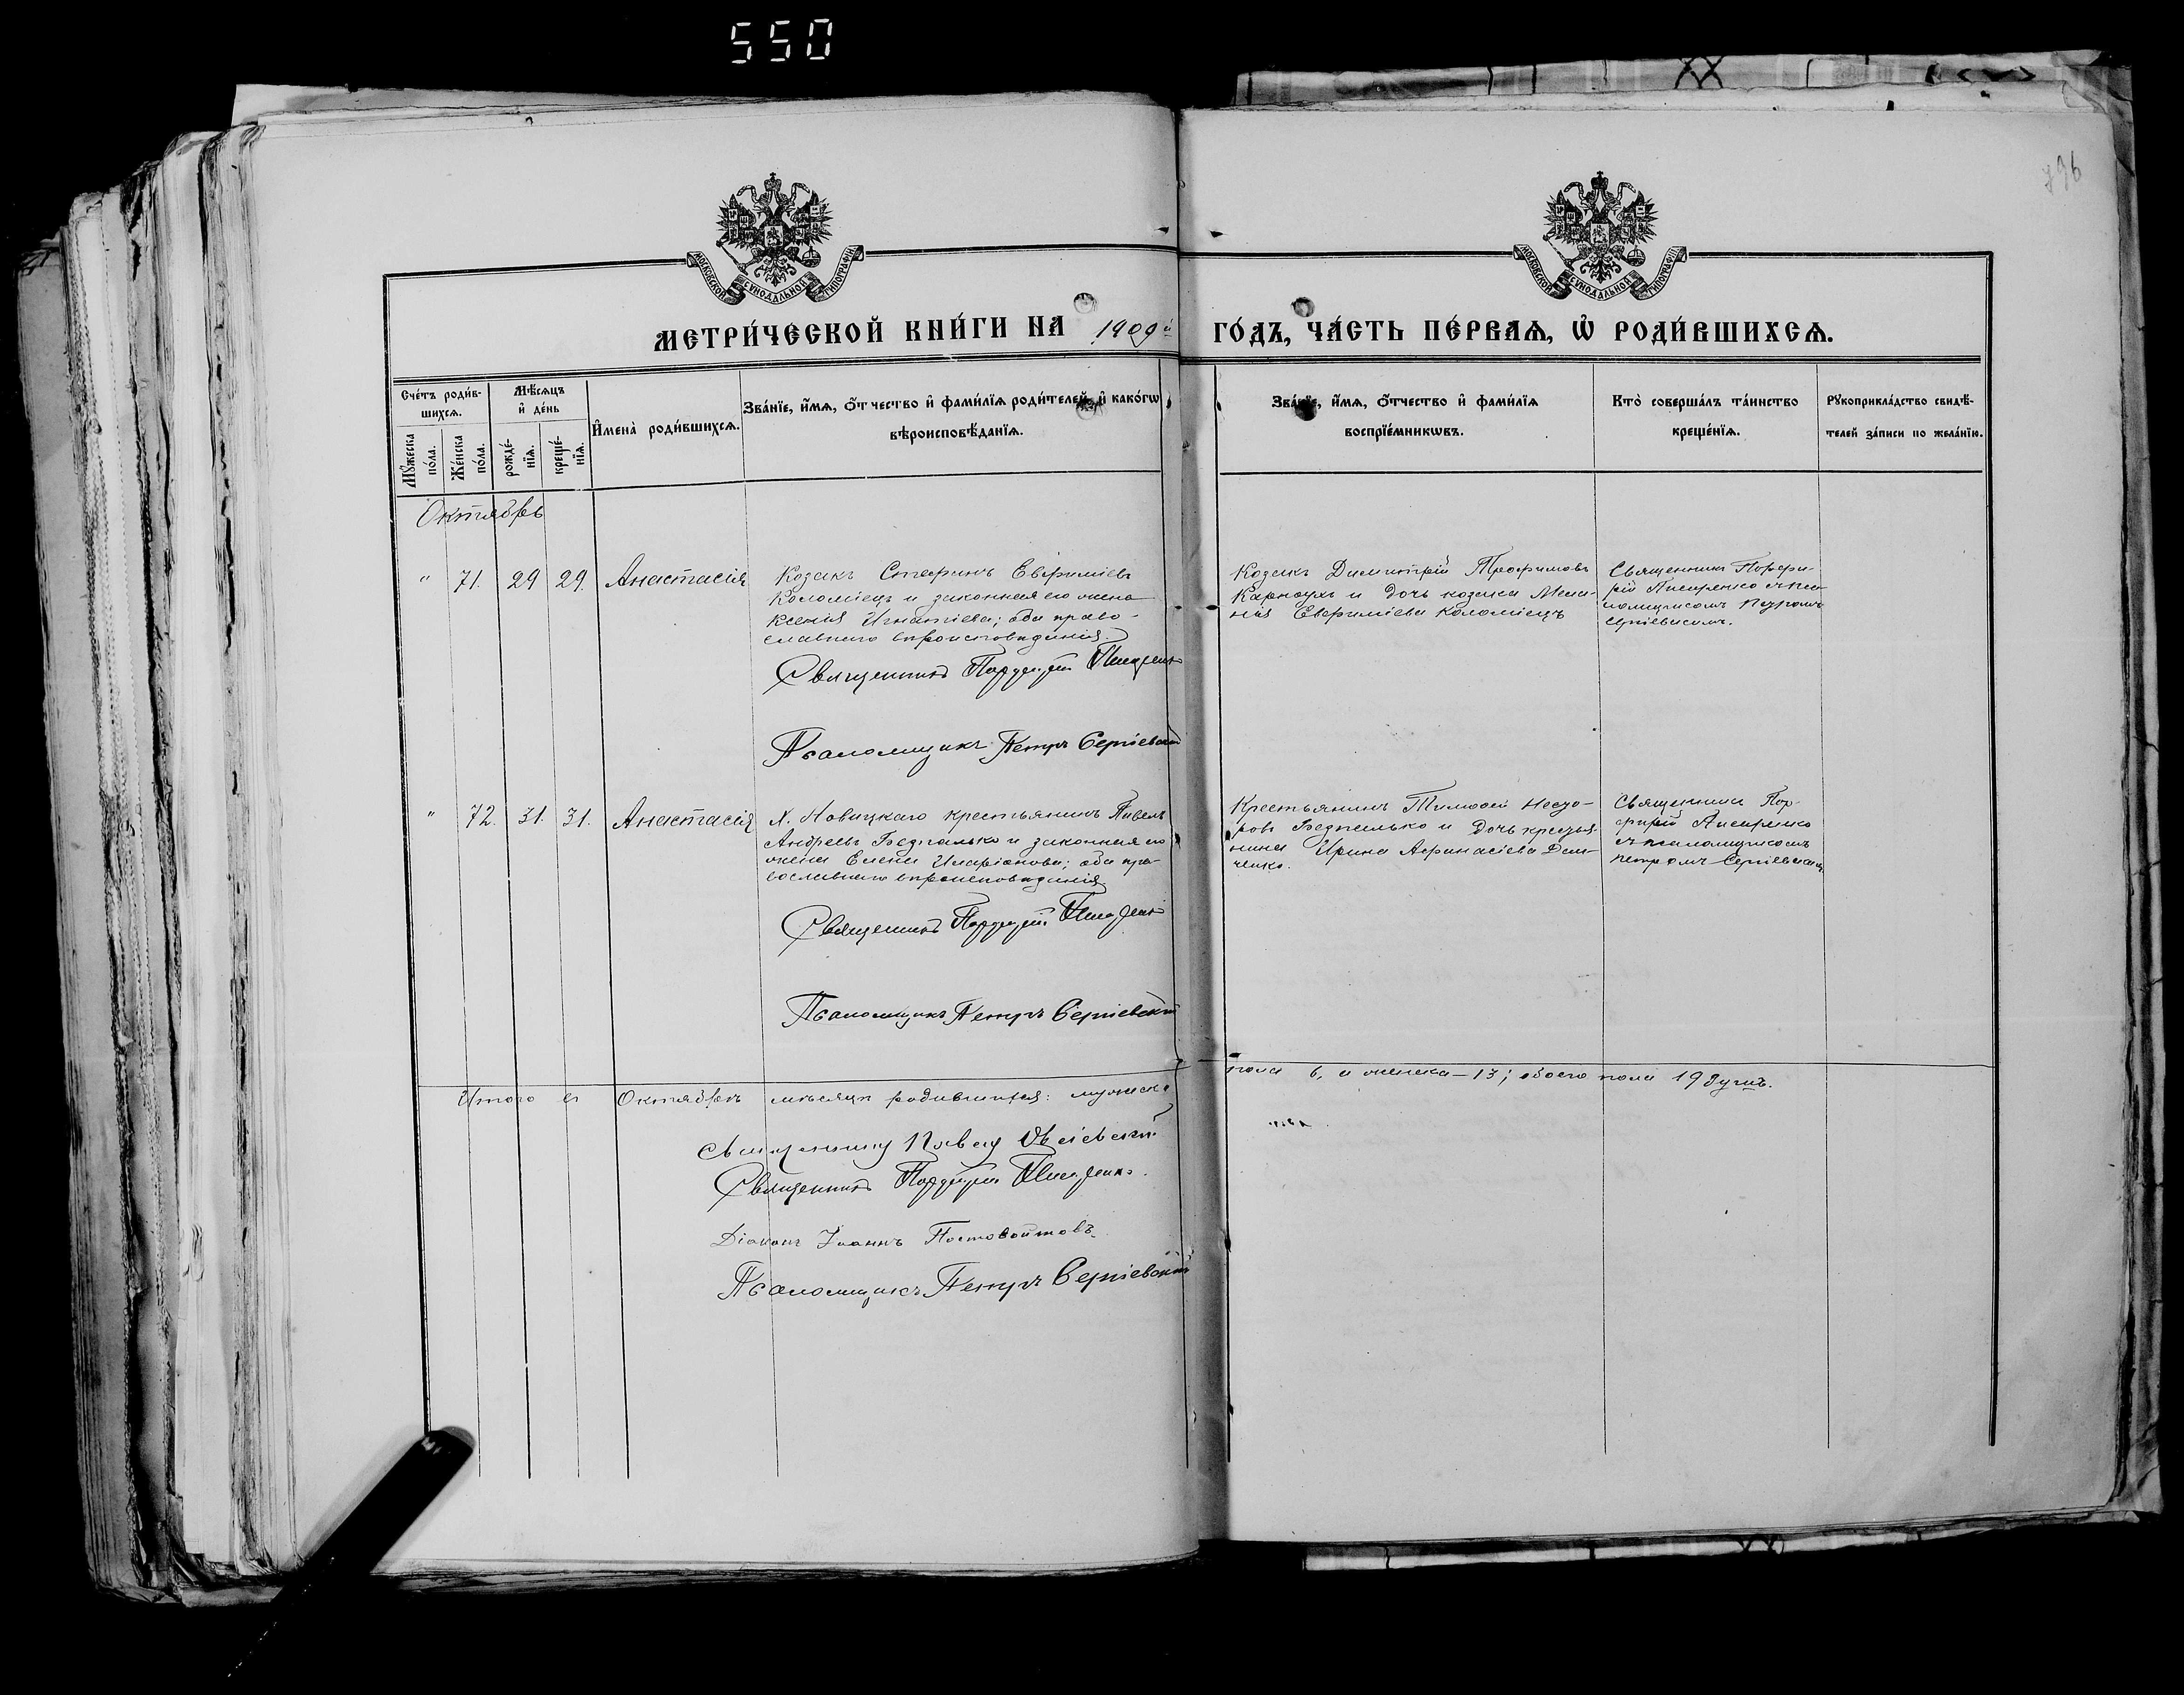 550
796
МОСКОВСКОЙ СѴНОДАЛЬНОЙ ТИПОГРАФІИ
МОСКОВСКОЙ СѴНОДАЛЬНОЙ ТИПОГРАФІИ
МЕТРИ́ЧЕСКОЙ КНИ́ГИ НА 1909й ГО́ДЪ, ЧА́СТЬ ПЕ́РВАѦ, Ѡ҆ РОДИ́ВШИХСѦ.
Сче́тъ роди́в-
шихсѧ.
Мꙋ́жеска по́ла.
Же́нска по́ла.
Мѣ́сѧцъ и҆ де́нь
рожде́-
нїѧ.
креще́-
нїѧ.
И҆мена̀ роди́вшихсѧ.
Зва́нїе, и҆́мѧ, ѻ҆́тчество и҆ фами́лїѧ роди́телей, и҆ како́гѡ
вѣроисповѣ́данїѧ.
Зва́нїе, и҆́мѧ, ѻ҆́тчество и҆ фами́лїѧ
воспрїе́мникѡвъ.
Кто̀ соверша́лъ та́инство
креще́нїѧ.
Рꙋкоприкла́дство свидѣ́-
телей за́писи по жела́нїю.
Октябрь
" 71. 29 29. Анастасія
Козакъ Стефанъ Евфиміевъ
Коломіецъ и законная его жена
Ксенія Игнатіева; оба право-
славнаго вѣроисповѣданія.
Священникъ Порфирій Писаренко
Псаломщикъ Петръ Сергіевскій
Козакъ Димитрій Трофимовъ
Карнаухъ и дочь козака Мела-
нія Евфиміева Коломіецъ
Священникъ Порфи-
рій Писаренко съ пса-
ломщикомъ Петромъ
Сергіевскимъ.
" 72. 31. 31. Анастасія
х. Новицкаго крестьянинъ Павелъ
Андреевъ и законная его
жена Елена Иларіонова; оба пра-
вославнаго вѣроисповѣданія
Священникъ Порфирій Писаренко
Псаломщикъ Петръ Сергіевскій
Крестьянинъ Тимофей Несто-
ровъ и дочь крестья-
нина Ирина Афанасіева Дем-
ченко.
Священникъ Пор-
фирій Писаренко
съ псаломщикомъ
Петромъ Сергіевскимъ
Итого въ Октябрѣ мѣсяцѣ родившихся: мужеска пола 6, и женска – 13; обоего пола 19 душъ.
Священникъ Павелъ
Священникъ Порфирій Писаренко.
Діаконъ Іоаннъ Постовойтовъ.
Псаломщикъ Петръ Сергіевскій